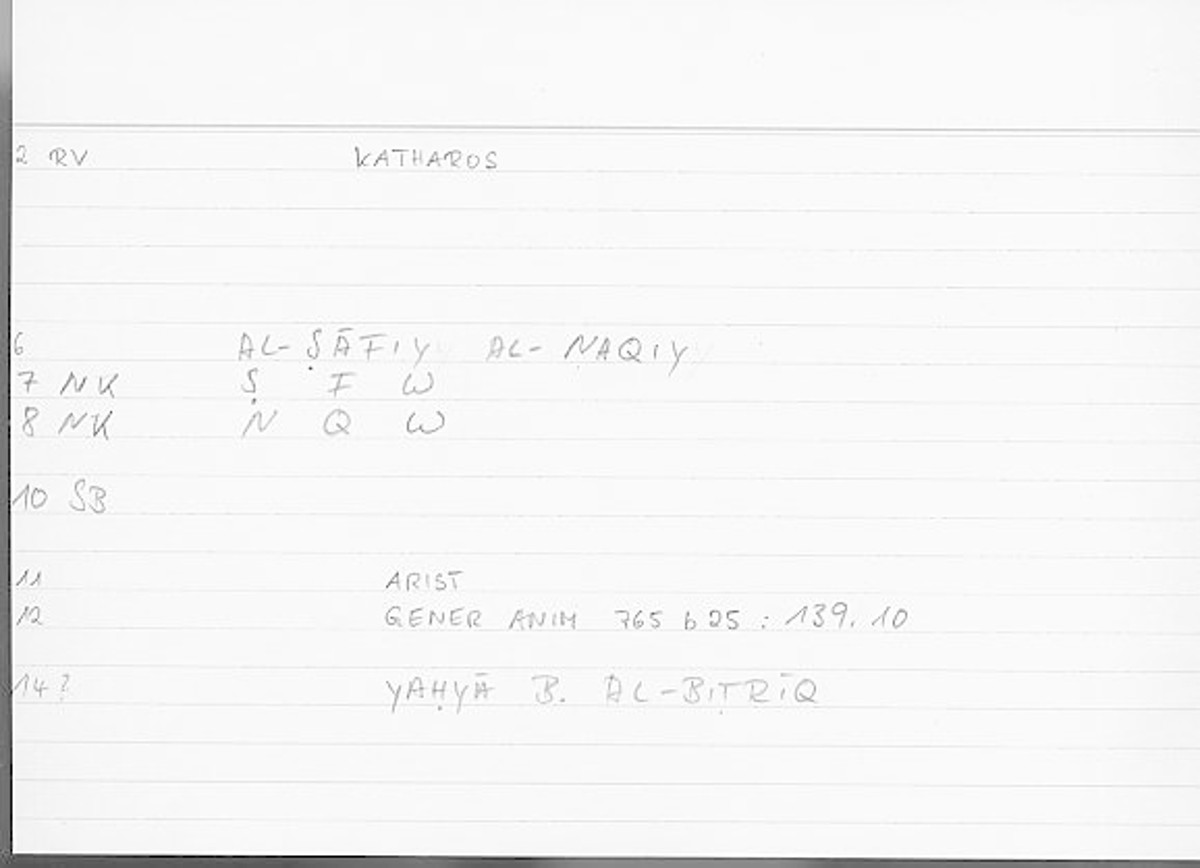 2 RV KATHAROS
6 AL-ṢĀFIY AL-NAQIY
7 NK Ṣ F W
8 NK N Q W
10 SB
11 ARIST
12 GENER ANIM 765 b 25 : 139. 10
14? YAḤYĀ B. AL-BIṬRĪQ